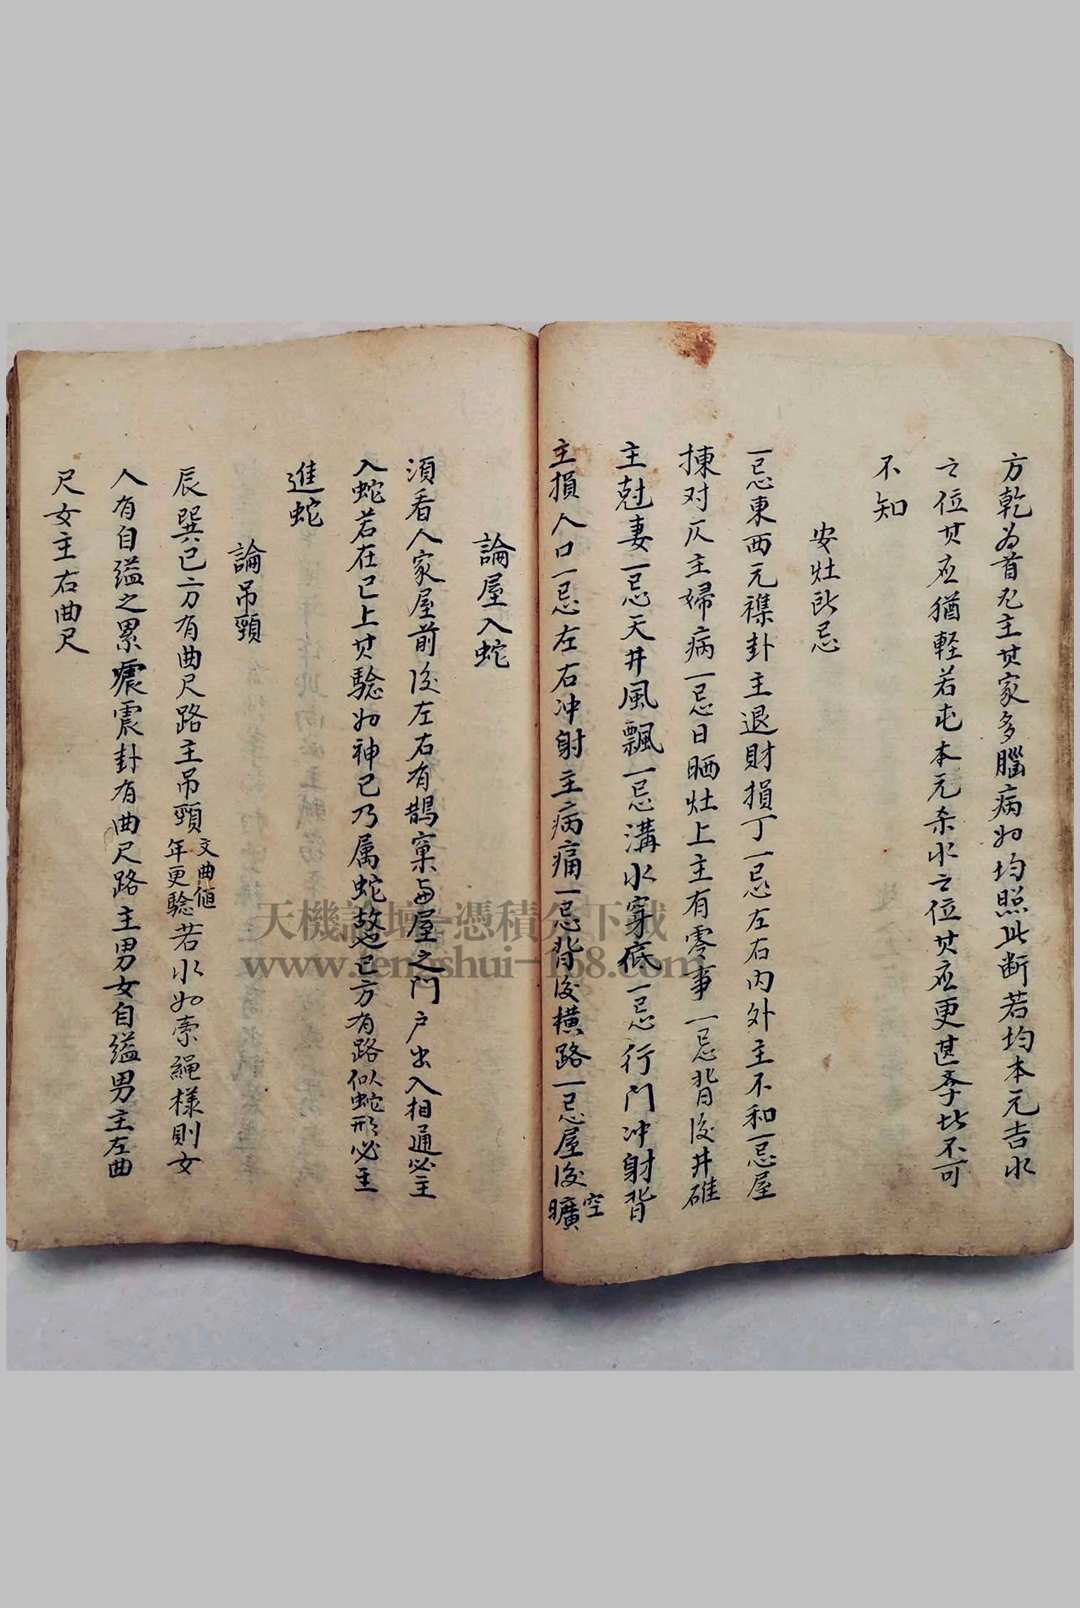 方乾为首凢主其家多腦病如均照此断若均本元吉水
之位其应猶軽若屯本元杀水之位其应更甚孝比不可
不知
安灶所忌
一忌東西元襍卦主退財損丁一忌左右内外主不和一忌屋
揀对仄主婦病一忌日晒灶上主有零事一忌背後井碓
主尅妻一忌天井風飄一忌溝水穿底一忌行門冲射背
主損人口一忌左右冲射主病痛一忌背後横路一忌屋後曠
空
論屋入蛇
須看人家屋前後左右有鵲窠与屋之門户出入相通必主
入蛇若在巳上其騐如神巳乃属蛇故也巳方有路似蛇形必主
進蛇
論吊頸
辰巽巳方有曲尺路主吊頸文曲值年更騐若水如索繩樣則女
人有自缢之累震卦有曲尺路主男女自缢男主左曲
尺女主右曲尺
天機論壇-憑積分下載
www.fengshui-168.com